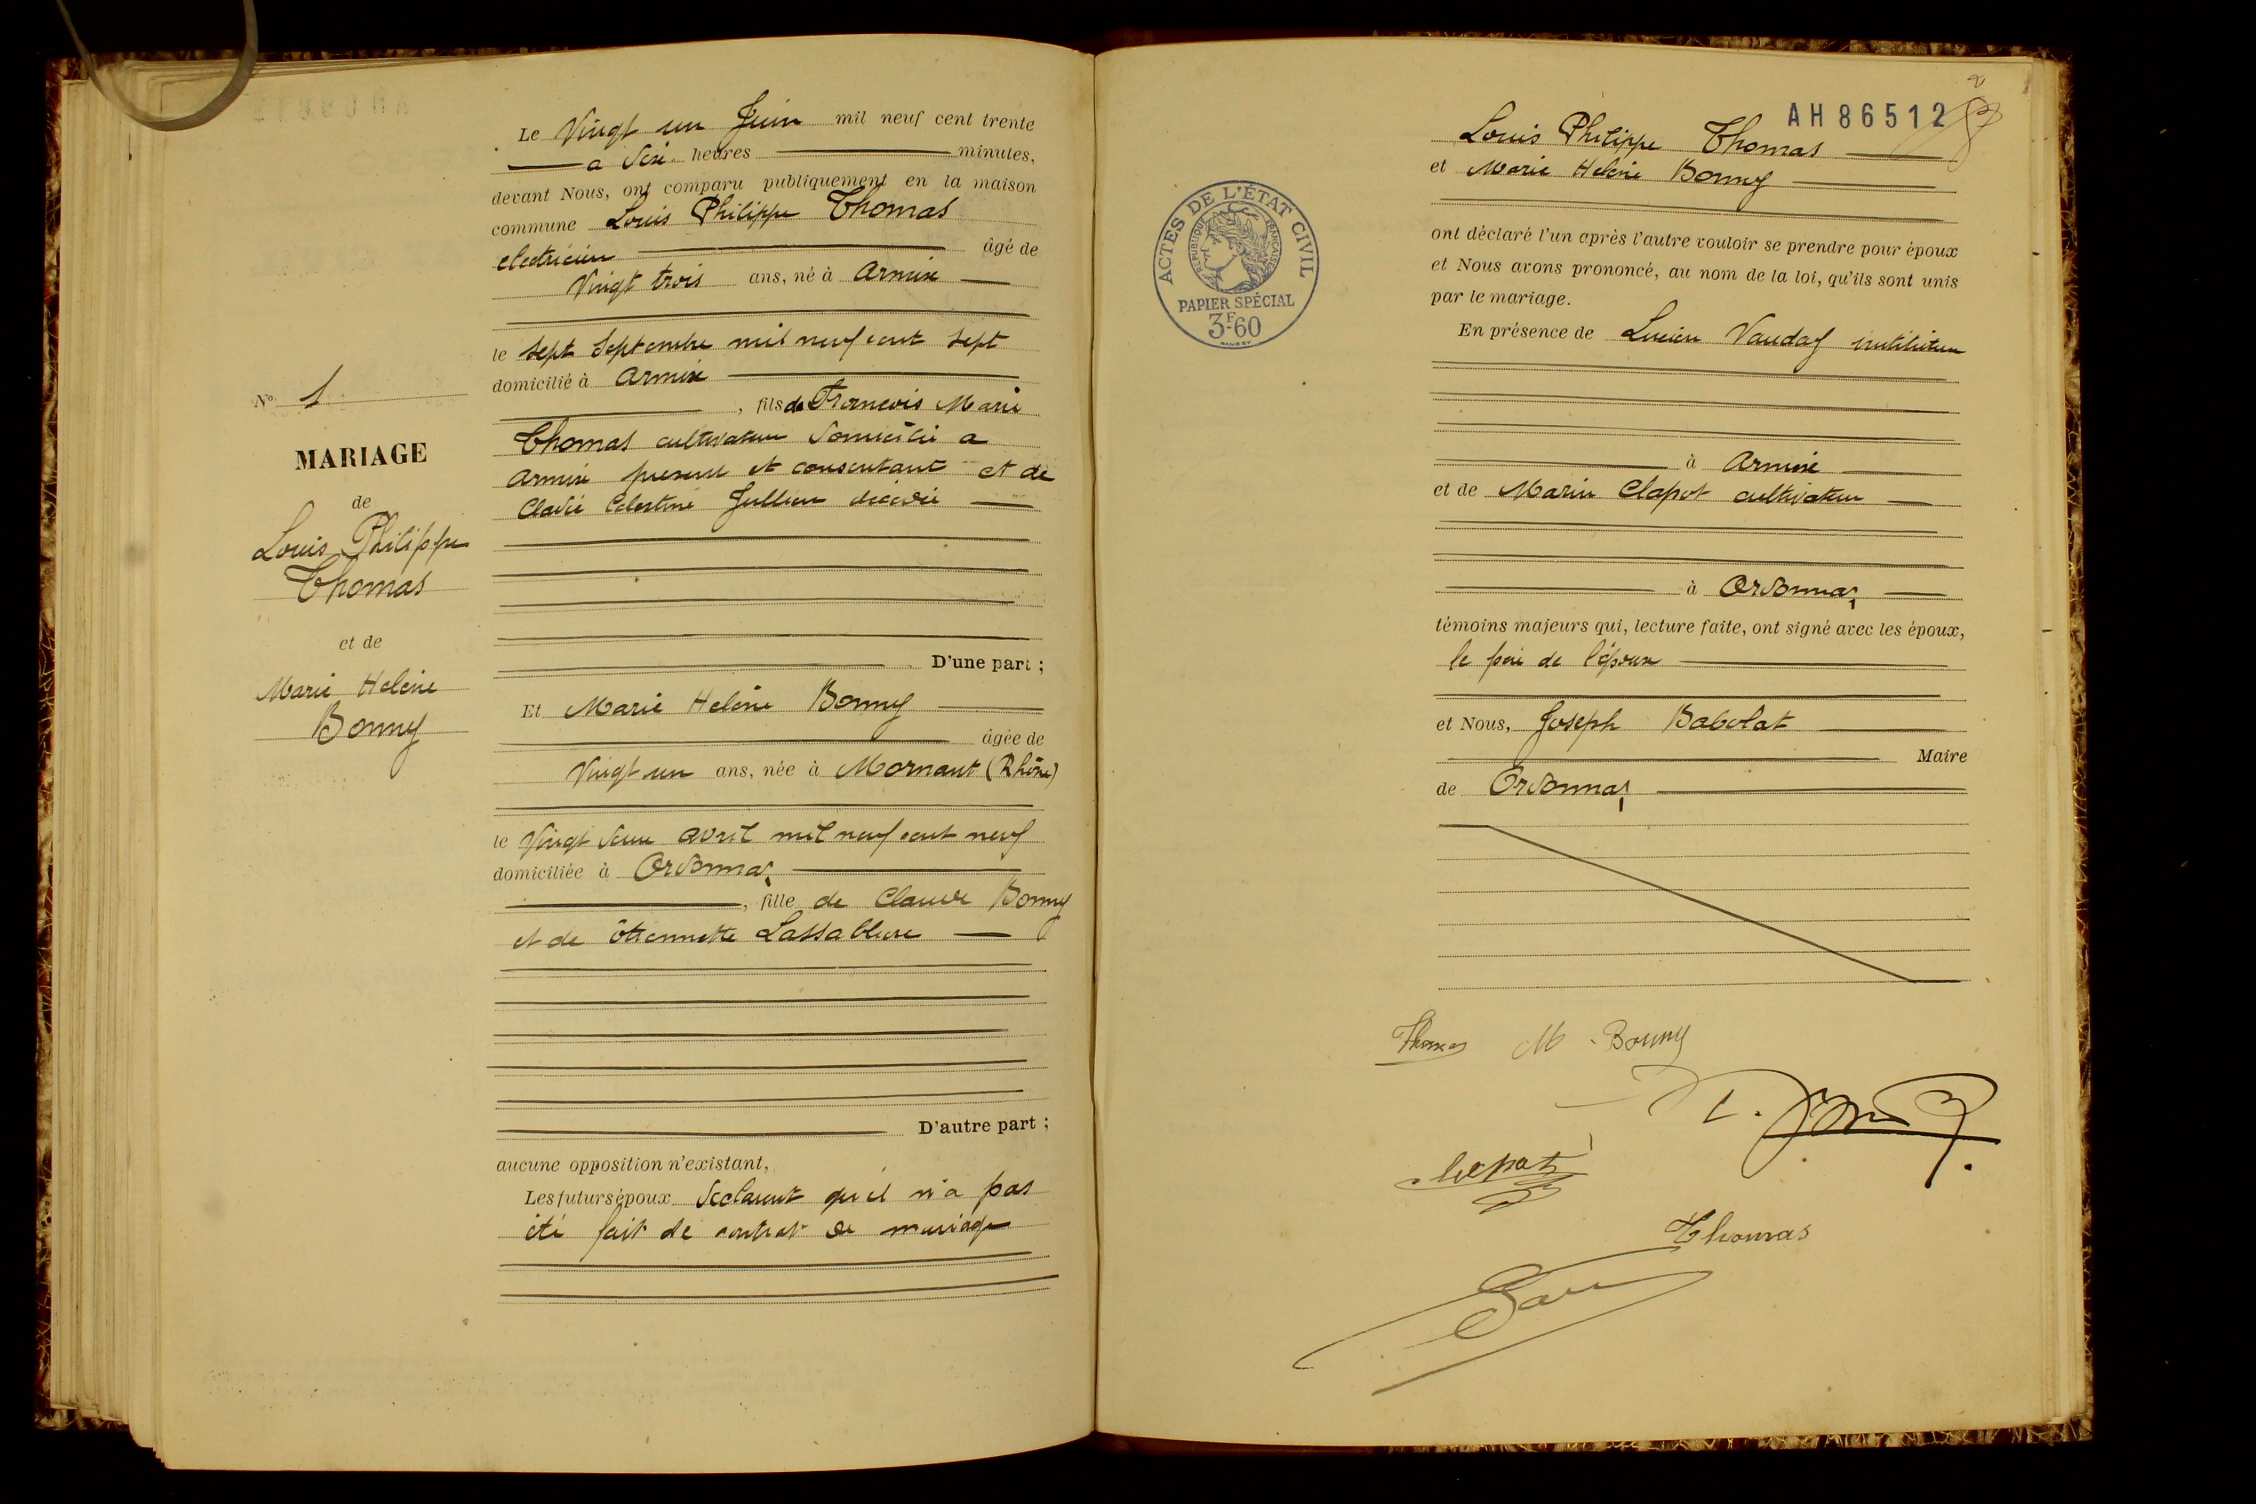 Le Vingt un Juin mil neuf cent trente
a dix heures minutes,
devant Nous, ont comparu publiquement en la maison
commune Louis Philippe Thomas
electricien âgé de
Vingt trois ans, né à Armix
le sept Septembre mil neuf cent sept
domicilié à Armix
, fils de François Marie
Thomas cultivateur domicilié a
Armix present et consentant et de
Célestine Jullien décédée
D'une part ;
Et Marie Helene Bonny
âgée de
Vingt un ans, née à Mornant (Rhône)
le Vingt deux avril mil neuf cent neuf
domiciliée à Ordonnaz
, fille de Claude Bonny
et de étiennette Lassablière
D'autre part ;
aucune opposition n'existant,
Les futurs époux declarent qu'il n'a pas
été fait de contrat de mariage
No 1
MARIAGE
de
Louis Philippe
Thomas
et de
Marie Helene
Bonny
AH 86512
Louis Philippe Thomas
et Marie Helene Bonny
ont déclaré l'un après l'autre vouloir se prendre pour époux
et Nous avons prononcé, au nom de la loi, qu'ils sont unis
par le mariage.
En présence de Lucien instituteur
à Armix
et de Marin Clapot cultivateur
à Ordonnaz
témoins majeurs qui, lecture faite, ont signé avec les époux,
le père de l'époux
et Nous, Joseph Babolat
Maire
de Ordonnaz
ACTES DE L'ÉTAT CIVIL
RÉPUBLIQUE FRANÇAISE
PAPIER SPÉCIAL
3F60
Thomas M. Bonny
Clapot
Thomas